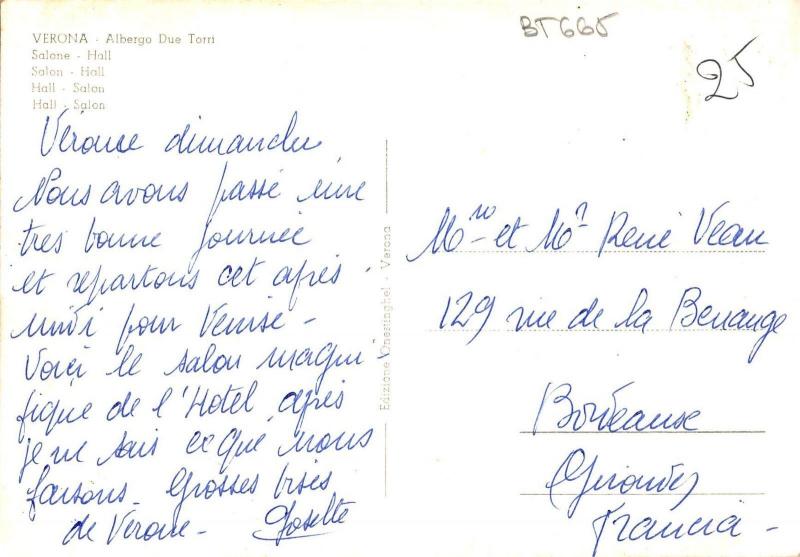 VERONA - Albergo Due Torri
Salone - Hall
Salon - Hall
Hall - Salon
Hall - Salon
Vérone dimanche
Nous avons passé une
très bonne journée
et repartons cet après
midi pour Venise -
Voici le salon magni
fique de l'Hotel après
je ne sais ce que nous
faisons. Grosses bises
de Verone - Josette
Edizione - Verona
BT665
25
Mme et Mr René Veau
129 rue de la Benauge
Bordeaux
(Gironde)
Francia -